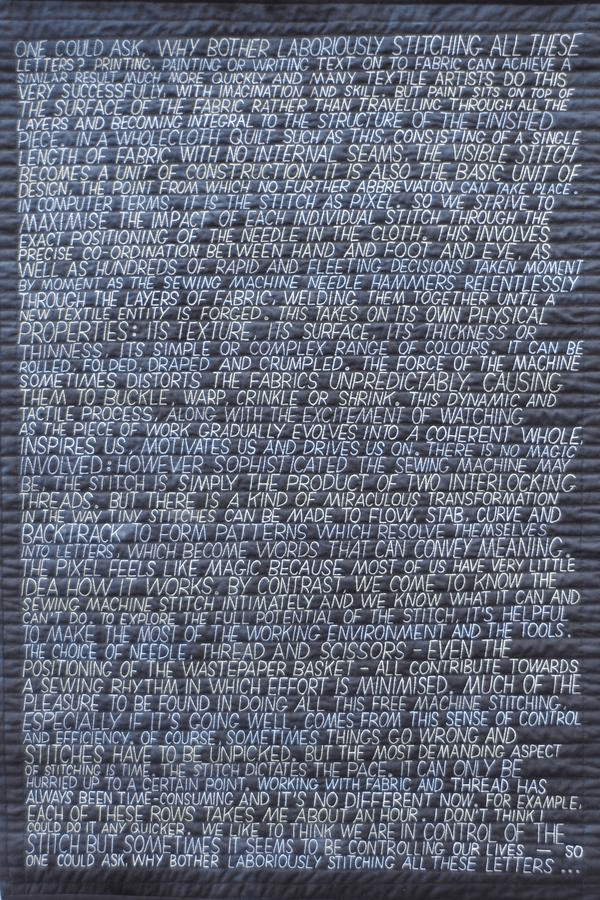 ONE COULD ASK, WHY BOTHER LABORIOUSLY STITCHING ALL THESE
LETTERS? PRINTING, PAINTING OR WRITING TEXT ON TO FABRIC CAN ACHIEVE A
SIMILAR RESULT MUCH MORE QUICKLY AND MANY TEXTILE ARTISTS DO THIS
VERY SUCCESSFULLY, WITH IMAGINATION AND SKILL. BUT PAINT SITS ON TOP OF
THE SURFACE OF THE FABRIC RATHER THAN TRAVELLING THROUGH ALL THE
LAYERS AND BECOMING INTEGRAL TO THE STRUCTURE OF THE FINISHED
PIECE. IN A WHOLECLOTH QUILT SUCH AS THIS, CONSISTING OF A SINGLE
LENGTH OF FABRIC WITH NO INTERNAL SEAMS, THE VISIBLE STITCH
BECOMES A UNIT OF CONSTRUCTION. IT IS ALSO THE BASIC UNIT OF
DESIGN, THE POINT FROM WHICH NO FURTHER ABBREVIATION CAN TAKE PLACE.
IN COMPUTER TERMS, IT IS THE STITCH AS PIXEL. SO WE STRIVE TO
MAXIMISE THE IMPACT OF EACH INDIVIDUAL STITCH THROUGH THE
EXACT POSITIONING OF THE NEEDLE IN THE CLOTH. THIS INVOLVES
PRECISE CO-ORDINATION BETWEEN HAND AND FOOT AND EYE, AS
WELL AS HUNDREDS OF RAPID AND FLEETING DECISIONS TAKEN MOMENT
BY MOMENT AS THE SEWING MACHINE NEEDLE HAMMERS RELENTLESSLY
THROUGH THE LAYERS OF FABRIC, WELDING THEM TOGETHER UNTIL A
NEW TEXTILE ENTITY IS FORGED. THIS TAKES ON ITS OWN PHYSICAL
PROPERTIES: ITS TEXTURE, ITS SURFACE, ITS THICKNESS OR
THINNESS, ITS SIMPLE OR COMPLEX RANGE OF COLOURS. IT CAN BE
ROLLED, FOLDED, DRAPED AND CRUMPLED. THE FORCE OF THE MACHINE
SOMETIMES DISTORTS THE FABRICS UNPREDICTABLY, CAUSING
THEM TO BUCKLE, WARP, CRINKLE OR SHRINK. THIS DYNAMIC AND
TACTILE PROCESS, ALONG WITH THE EXCITEMENT OF WATCHING
AS THE PIECE OF WORK GRADUALLY EVOLVES INTO A COHERENT WHOLE,
INSPIRES US, MOTIVATES US AND DRIVES US ON. THERE IS NO MAGIC
INVOLVED: HOWEVER SOPHISTICATED THE SEWING MACHINE MAY
BE, THE STITCH IS SIMPLY THE PRODUCT OF TWO INTERLOCKING
THREADS. BUT THERE IS A KIND OF MIRACULOUS TRANSFORMATION
IN THE WAY TINY STITCHES CAN BE MADE TO FLOW, STAB, CURVE AND
BACKTRACK TO FORM PATTERNS WHICH RESOLVE THEMSELVES
INTO LETTERS, WHICH BECOME WORDS THAT CAN CONVEY MEANING.
THE PIXEL FEELS LIKE MAGIC BECAUSE MOST OF US HAVE VERY LITTLE
IDEA HOW IT WORKS. BY CONTRAST, WE COME TO KNOW THE
SEWING MACHINE STITCH INTIMATELY AND WE KNOW WHAT IT CAN AND
CAN'T DO. TO EXPLORE THE FULL POTENTIAL OF THE STITCH, IT'S HELPFUL
TO MAKE THE MOST OF THE WORKING ENVIRONMENT AND THE TOOLS.
THE CHOICE OF NEEDLE, THREAD AND SCISSORS – EVEN THE
POSITIONING OF THE WASTEPAPER BASKET – ALL CONTRIBUTE TOWARDS
A SEWING RHYTHM IN WHICH EFFORT IS MINIMISED. MUCH OF THE
PLEASURE TO BE FOUND IN DOING ALL THIS FREE MACHINE STITCHING,
ESPECIALLY IF IT'S GOING WELL, COMES FROM THIS SENSE OF CONTROL
AND EFFICIENCY. OF COURSE, SOMETIMES THINGS GO WRONG AND
STITCHES HAVE TO BE UNPICKED. BUT THE MOST DEMANDING ASPECT
OF STITCHING IS TIME. THE STITCH DICTATES THE PACE. IT CAN ONLY BE
HURRIED UP TO A CERTAIN POINT. WORKING WITH FABRIC AND THREAD HAS
ALWAYS BEEN TIME-CONSUMING AND IT'S NO DIFFERENT NOW. FOR EXAMPLE,
EACH OF THESE ROWS TAKES ME ABOUT AN HOUR. I DON'T THINK I
COULD DO IT ANY QUICKER. WE LIKE TO THINK WE ARE IN CONTROL OF THE
STITCH BUT SOMETIMES IT SEEMS TO BE CONTROLLING OUR LIVES — SO
ONE COULD ASK, WHY BOTHER LABORIOUSLY STITCHING ALL THESE LETTERS ...